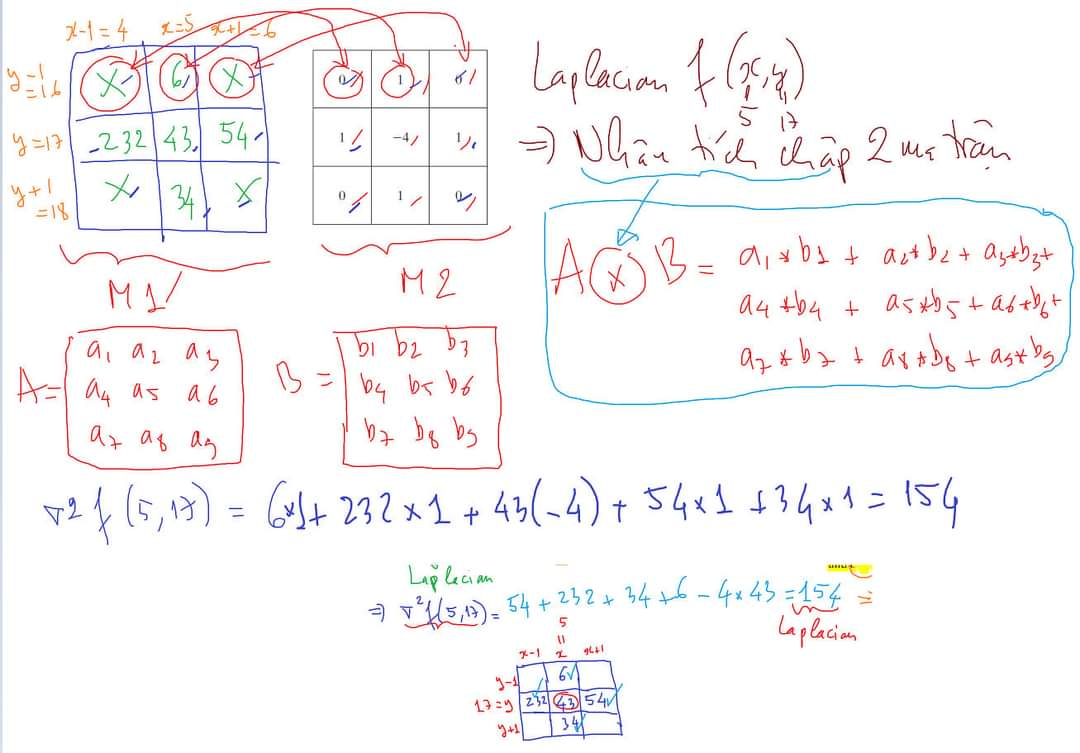 x-1=4 x=5 x+1=6
y-1=16 X 6 X
y=17 232 43 54
y+1=18 X 34 X
0 1 0
1 -4 1
0 1 0
M1
M2
Laplacian f(x,y)
5 17
=> Nhân tích chập 2 ma trận
A ⓧ B = a1*b1 + a2*b2 + a3*b3+
a4*b4 + a5*b5 + a6*b6+
a7*b7 + a8*b8 + a9*b9
A= a1 a2 a3
a4 a5 a6
a7 a8 a9
B = b1 b2 b3
b4 b5 b6
b7 b8 b9
∇2 f(5,17) = 6*1+ 232×1 + 43(-4) + 54×1 + 34×1 = 154
Laplacian
=> ∇²f(5,17) = 54 + 232 + 34 + 6 - 4×43 = 154 =
Laplacian
5
=
x-1 x x+1
y-1 6
17=y 232 43 54
y+1 34